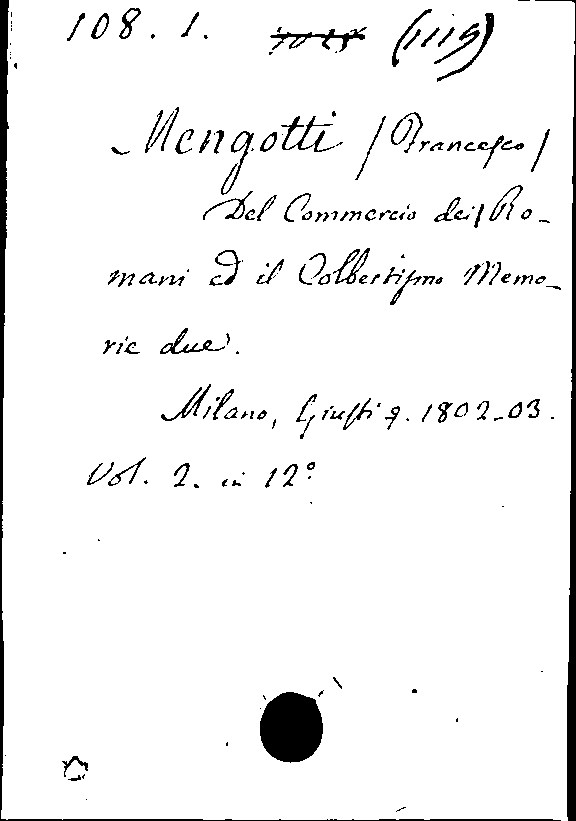 108. 1. (1119)
Mengotti /Francesco/
Del Commercio dei Ro-
mani ed il Colbertismo Memo-
rie due.
Milano, Giusti F. 1802-03.
Vol. 2. in 12º